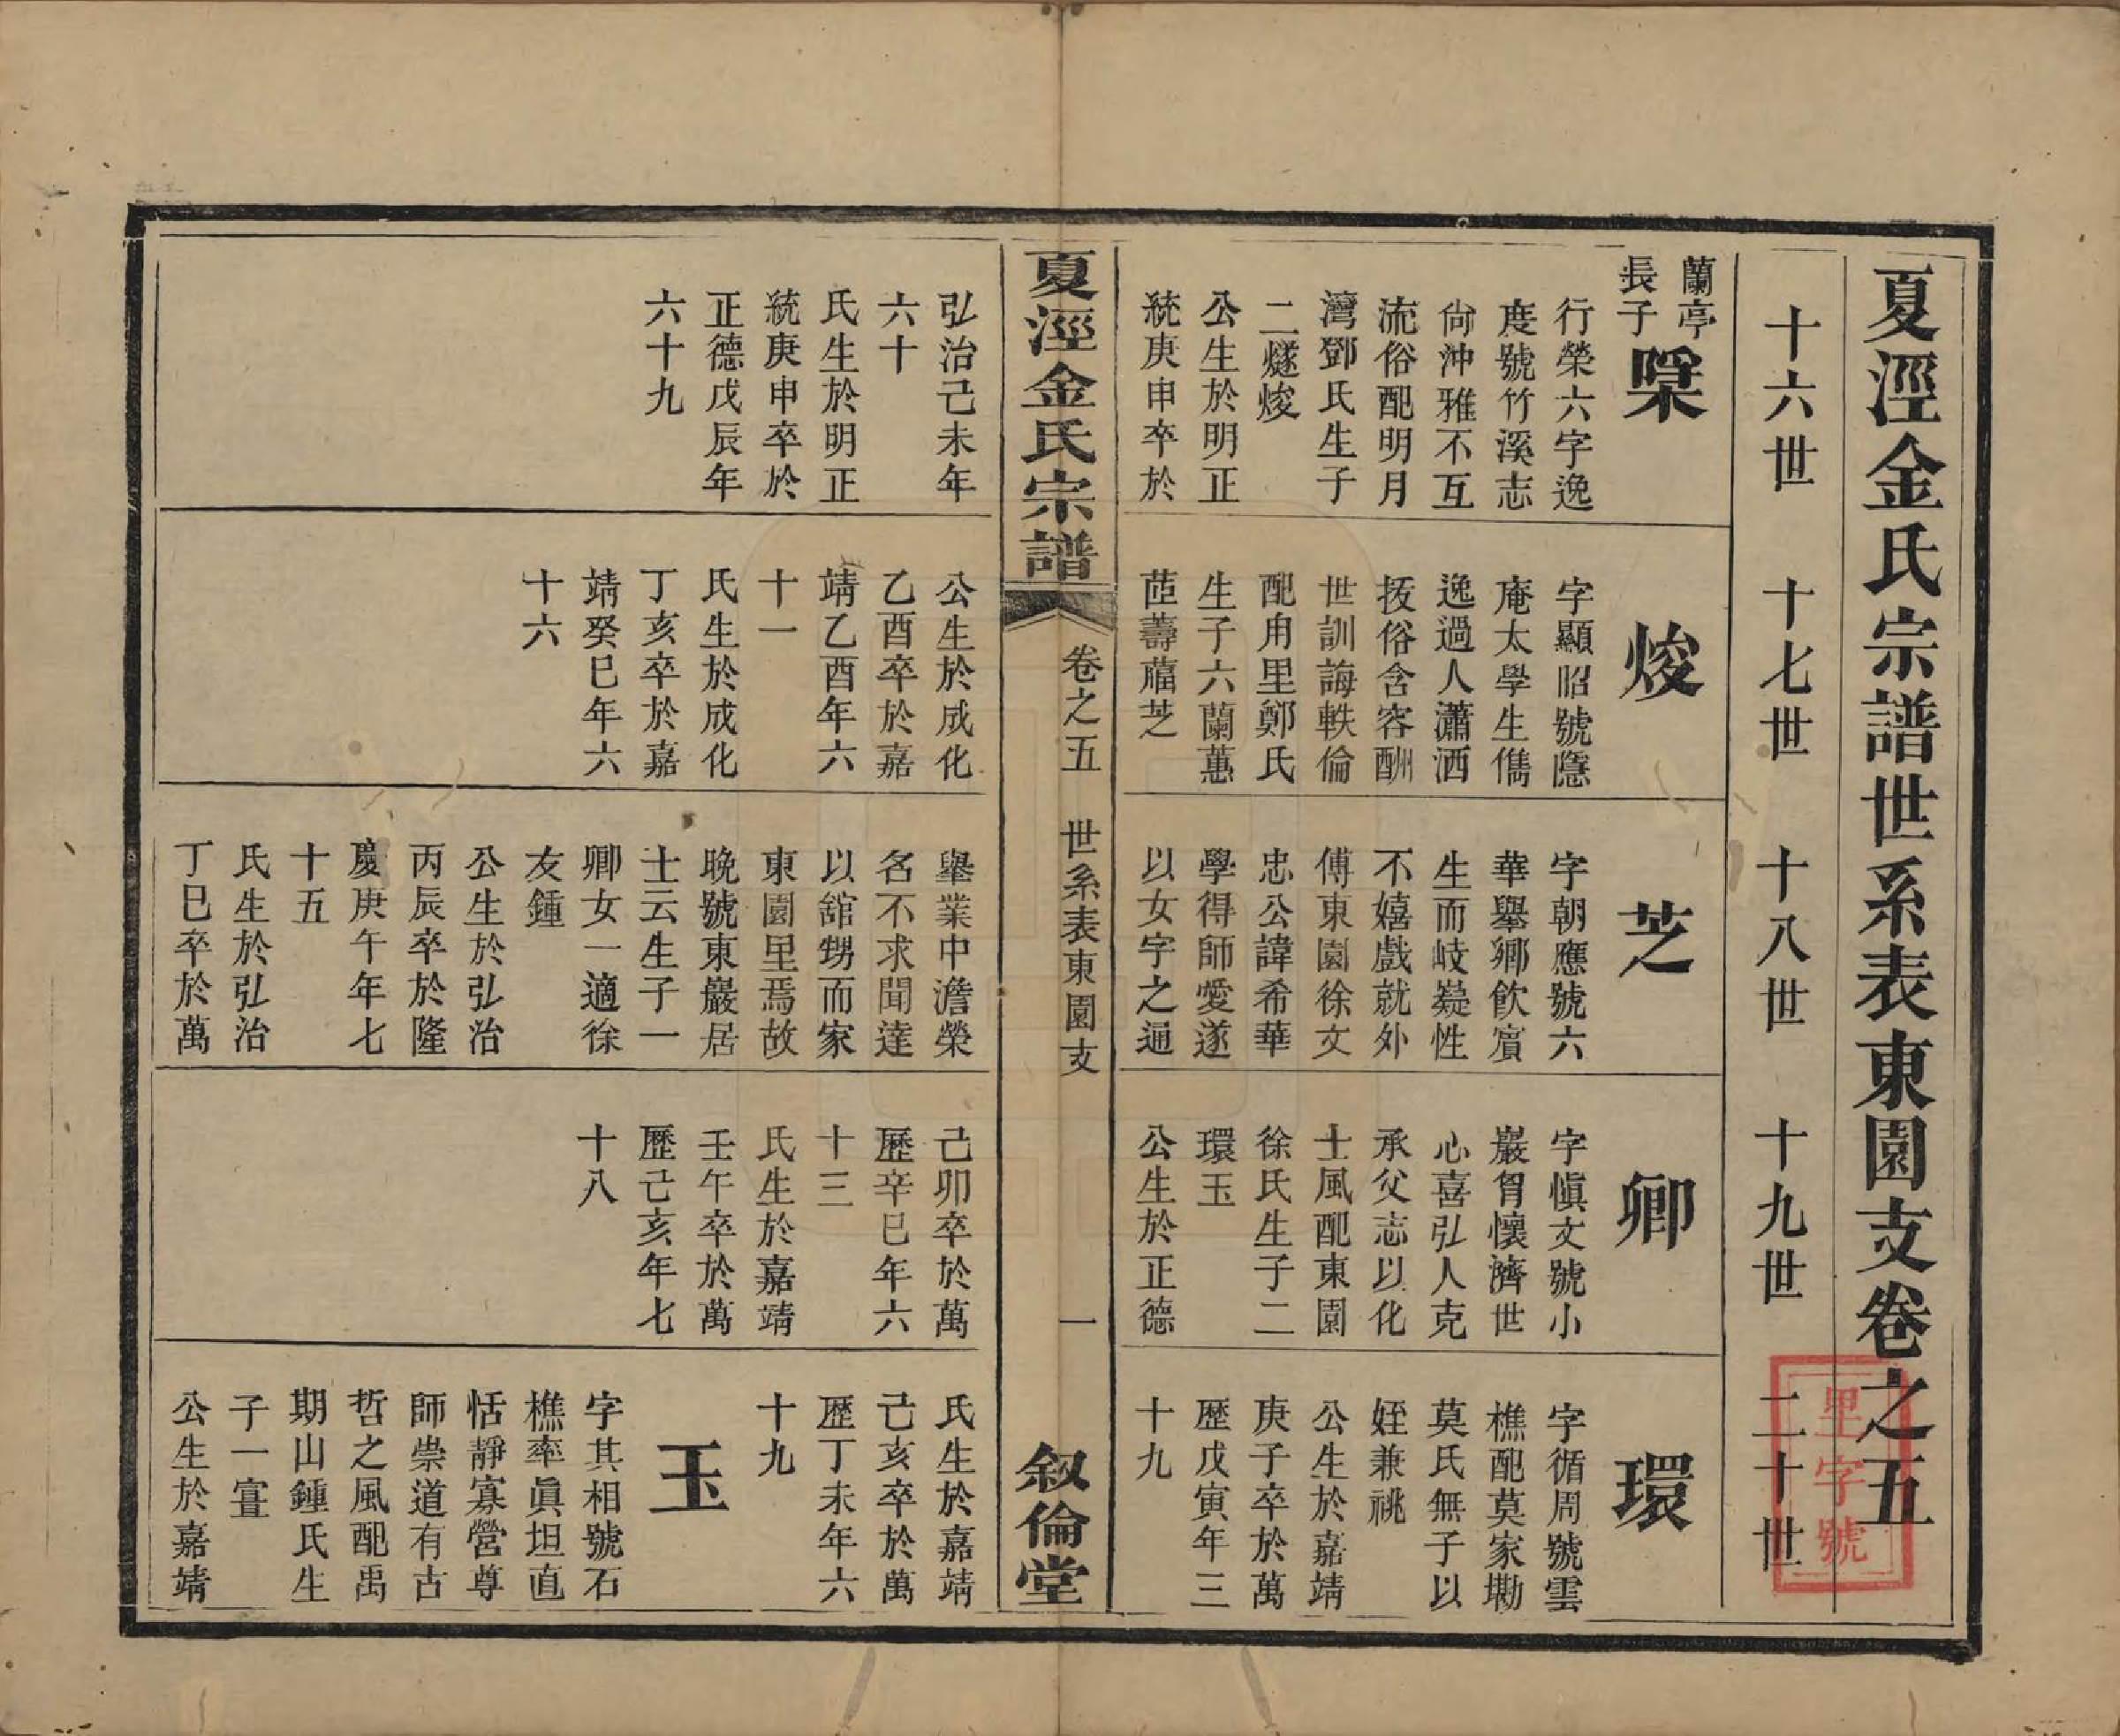 夏涇金氏宗譜世系表東園支卷之五
十六世
十七世
十八世
十九世
二十世
里字號
蘭亭
長子
槼
行榮六字逸
度號竹溪志
尙沖雅不互
流俗配明月
灣鄧氏生子
二燧焌
公生於明正
統庚申卒於
焌
字顯昭號隱
庵太學生儁
逸過人瀟洒
拔俗含容酬
世訓誨軼倫
配甪里鄭氏
生子六蘭蕙
茝薵葍芝
芝
字朝應號六
華舉鄉飮賓
生而岐嶷性
不嬉戲就外
傅東園徐文
忠公諱希華
學得師愛遂
以女字之通
卿
字愼文號小
巖胷懷濟世
心喜弘人克
承父志以化
士風配東園
徐氏生子二
環玉
公生於正德
環
字循周號雲
樵配莫家墈
莫氏無子以
姪兼祧
公生於嘉靖
庚子卒於萬
歷戊寅年三
十九
夏涇金氏宗譜
卷之五
世系表東園支
一
叙倫堂
弘治己未年
六十
氏生於明正
統庚申卒於
正德戊辰年
六十九
公生於成化
乙酉卒於嘉
靖乙酉年六
十一
氏生於成化
丁亥卒於嘉
靖癸巳年六
十六
舉業中澹榮
名不求聞達
以舘甥而家
東園里焉故
晚號東巖居
士云生子一
卿女一適徐
友鍾
公生於弘治
丙辰卒於隆
慶庚午年七
十五
氏生於弘治
丁巳卒於萬
己卯卒於萬
歷辛巳年六
十三
氏生於嘉靖
壬午卒於萬
歷己亥年七
十八
氏生於嘉靖
己亥卒於萬
歷丁未年六
十九
玉
字其相號石
樵率眞坦直
恬靜寡營尊
師崇道有古
哲之風配禹
期山鍾氏生
子一寊
公生於嘉靖